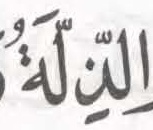 الذِّلَّةُ